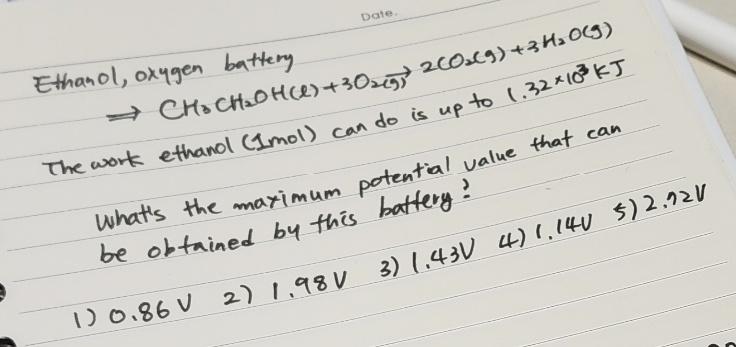 Date.
Ethanol, oxygen battery
⇒ CH3CH2OH(l) + 3O2(g) → 2CO2(g) + 3H2O(g)
The work ethanol (1mol) can do is up to 1.32×10³ KJ
What's the maximum potential value that can
be obtained by this battery?
1) 0.86 V 2) 1.98 V 3) 1.43V 4) 1.14V 5) 2.72V